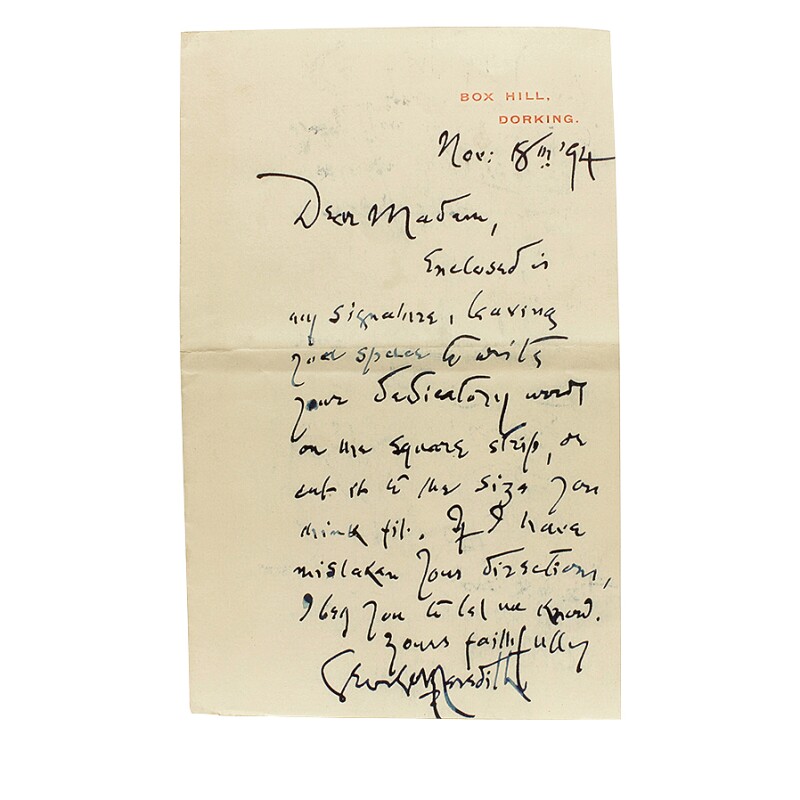 BOX HILL,
DORKING.
Nov: 18th '94
Dear Madam,
Enclosed is
my signature, leaving
you space to write
your dedicatory words
on the square strip, or
cut it to the size you
think fit. If I have
mistaken your directions,
I beg you to let me know.
Yours faithfully
George Meredith